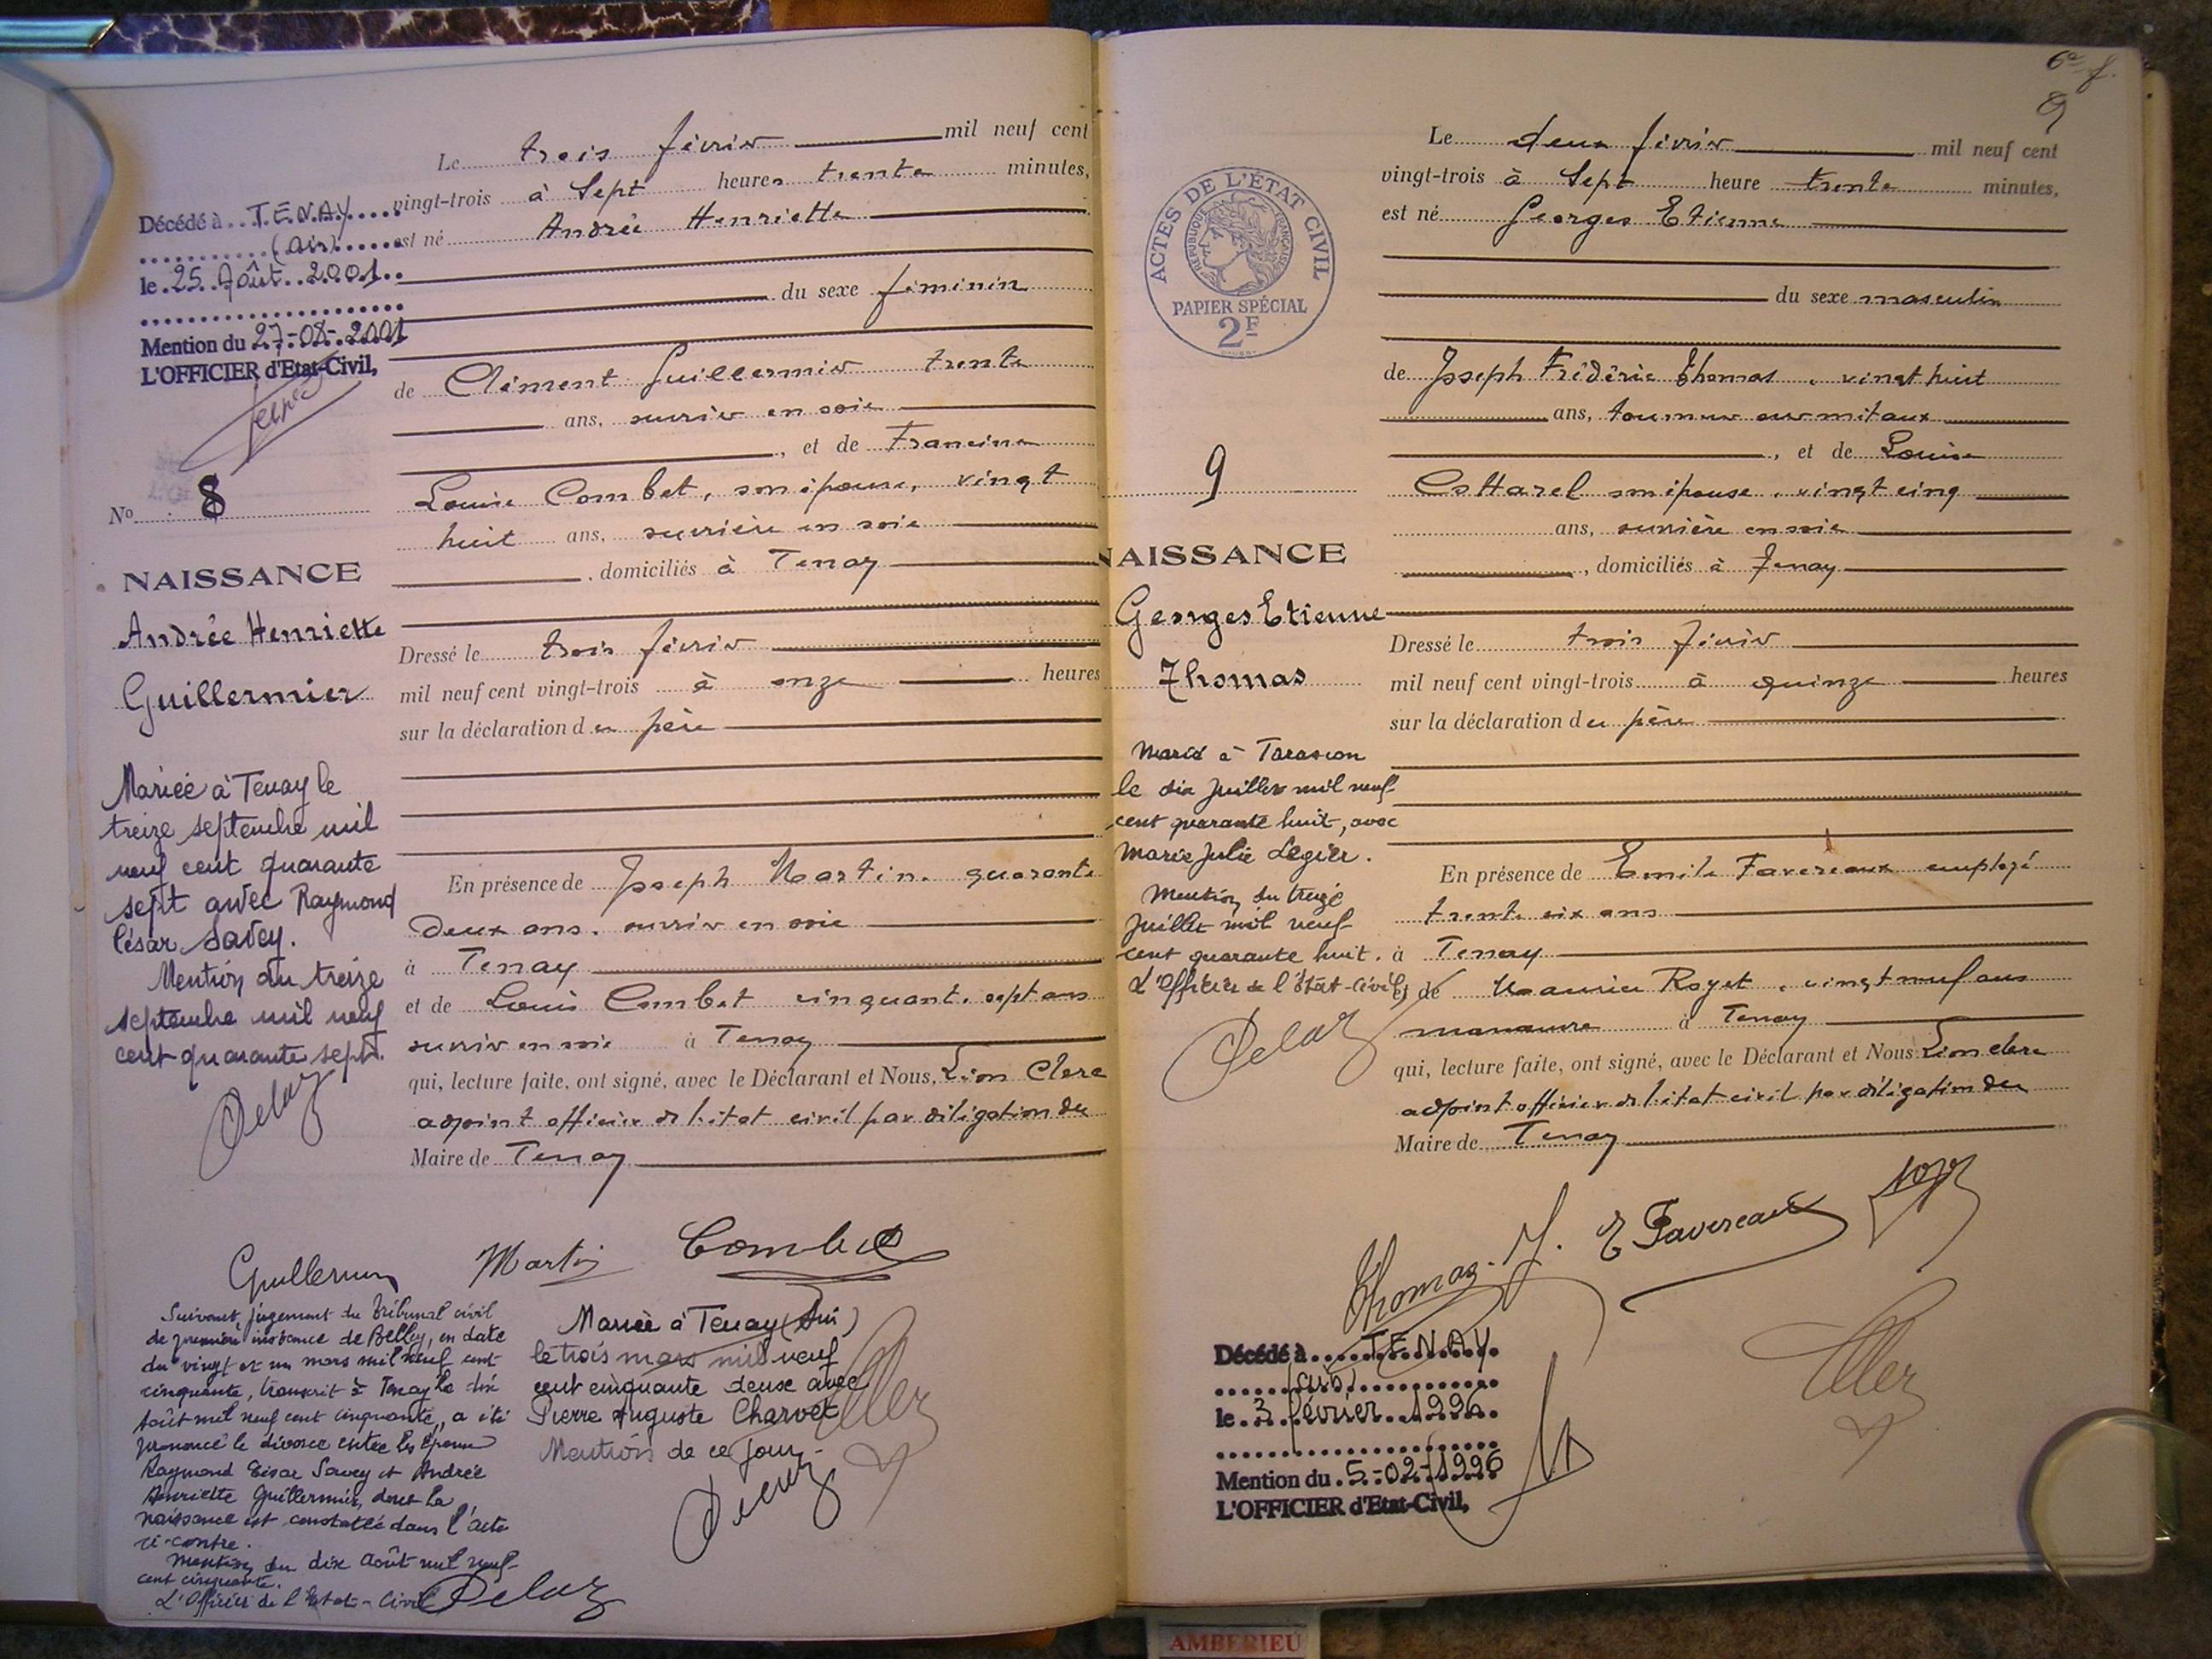 Le trois février mil neuf cent
vingt-trois à Sept heures trente minutes,
est né Andrée Henriette
du sexe féminin
de Clément Guillermier trente
ans, ouvrier en soie
, et de Francine
Louise Combet, son épouse, vingt
huit ans, ouvrière en soie
, domiciliés à Tenay
Dressé le trois février
mil neuf cent vingt-trois à onze heures
sur la déclaration du père
En présence de Joseph Martin. quarante
deux ans. ouvrier en soie
à Tenay
et de Louis Combet cinquante sept ans
ouvrier en soie à Tenay
qui, lecture faite, ont signé, avec le Déclarant et Nous, Léon Clerc
adjoint officier de l'état civil par délégation du
Maire de Tenay
Décédé à TENAY
(Ain)
le 25 Août 2001
Mention du 27-08-2001
L'OFFICIER d'Etat-Civil,
No 8
NAISSANCE
Andrée Henriette
Guillermier
Mariée à Tenay le
treize septembre mil
neuf cent quarante
sept avec Raymond
César Savey.
Mention du treize
septembre mil neuf
cent quarante sept.
Delaz
Guillermier Martin Combet
Suivant jugement du Tribunal civil
de première instance de Belley, en date
du vingt et un mars mil neuf cent
cinquante, transcrit à Tenay le dix
Août mil neuf cent cinquante, a été
prononcé le divorce entre les époux
Raymond César Savey et Andrée
Henriette Guillermier, dont la
naissance est constatée dans l'acte
ci-contre.
Mention du dix Août mil neuf
cent cinquante.
L'Officier de l'Etat-Civil
Delaz
Mariée à Tenay (Ain)
le trois mars mil neuf
cent cinquante deux avec
Pierre Auguste Charvet
Mention de ce jour.
6e f.
9
Le deux février mil neuf cent
vingt-trois à Sept heure trente minutes,
est né Georges Etienne
du sexe masculin
de Joseph Frédéric Thomas, vingt huit
ans, tourneur sur métaux
, et de Louise
Cottarel son épouse, vingt cinq
ans, ouvrière en soie
, domiciliés à Tenay
Dressé le trois février
mil neuf cent vingt-trois à quinze heures
sur la déclaration du père
En présence de Emile Favereaux employé
trente six ans
à Tenay
et de Maurice Royet, vingt neuf ans
manœuvre à Tenay
qui, lecture faite, ont signé, avec le Déclarant et Nous Léon Clerc
adjoint officier de l'état civil par délégation du
Maire de Tenay
ACTES DE L'ÉTAT CIVIL
RÉPUBLIQUE FRANÇAISE
PAPIER SPÉCIAL
2F
9
NAISSANCE
Georges Etienne
Thomas
Marié à Tarascon
le dix Juillet mil neuf
cent quarante huit, avec
Marie Julie Legier.
Mention du treize
Juillet mil neuf
cent quarante huit.
L'Officier de l'Etat-Civil,
Delaz
Thomas. J. E Favereaux
Décédé à TENAY
(Ain)
le 3 février 1996
Mention du 5-02-1996
L'OFFICIER d'Etat-Civil,
AMBERIEU